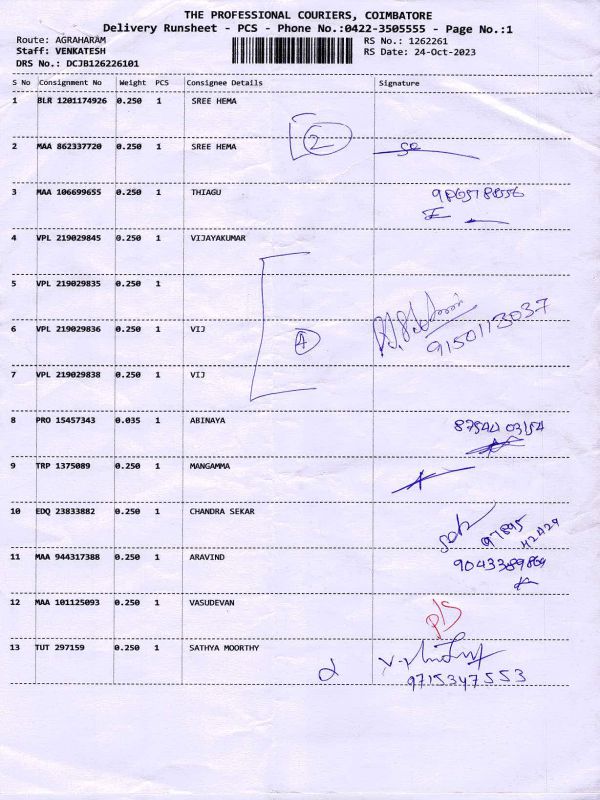 THE PROFESSIONAL COURIERS, COIMBATORE
Delivery Runsheet - PCS - Phone No.:0422-3505555 - Page No.:1
Route: AGRAHARAM
RS No.: 1262261
Staff: VENKATESH
RS Date: 24-Oct-2023
DRS No.: DCJB126226101
S No Consignment No Weight PCS Consignee Details Signature
1 BLR 1201174926 0.250 1 SREE HEMA
2
2 MAA 862337720 0.250 1 SREE HEMA
3 MAA 106699655 0.250 1 THIAGU
4 VPL 219029845 0.250 1 VIJAYAKUMAR
5 VPL 219029835 0.250 1
6 VPL 219029836 0.250 1 VIJ
4 9150113037
7 VPL 219029838 0.250 1 VIJ
8 PRO 15457343 0.035 1 ABINAYA
9 TRP 1375089 0.250 1 MANGAMMA
10 EDQ 23833882 0.250 1 CHANDRA SEKAR
97895
11 MAA 944317388 0.250 1 ARAVIND
12 MAA 101125093 0.250 1 VASUDEVAN
13 TUT 297159 0.250 1 SATHYA MOORTHY
9715347553